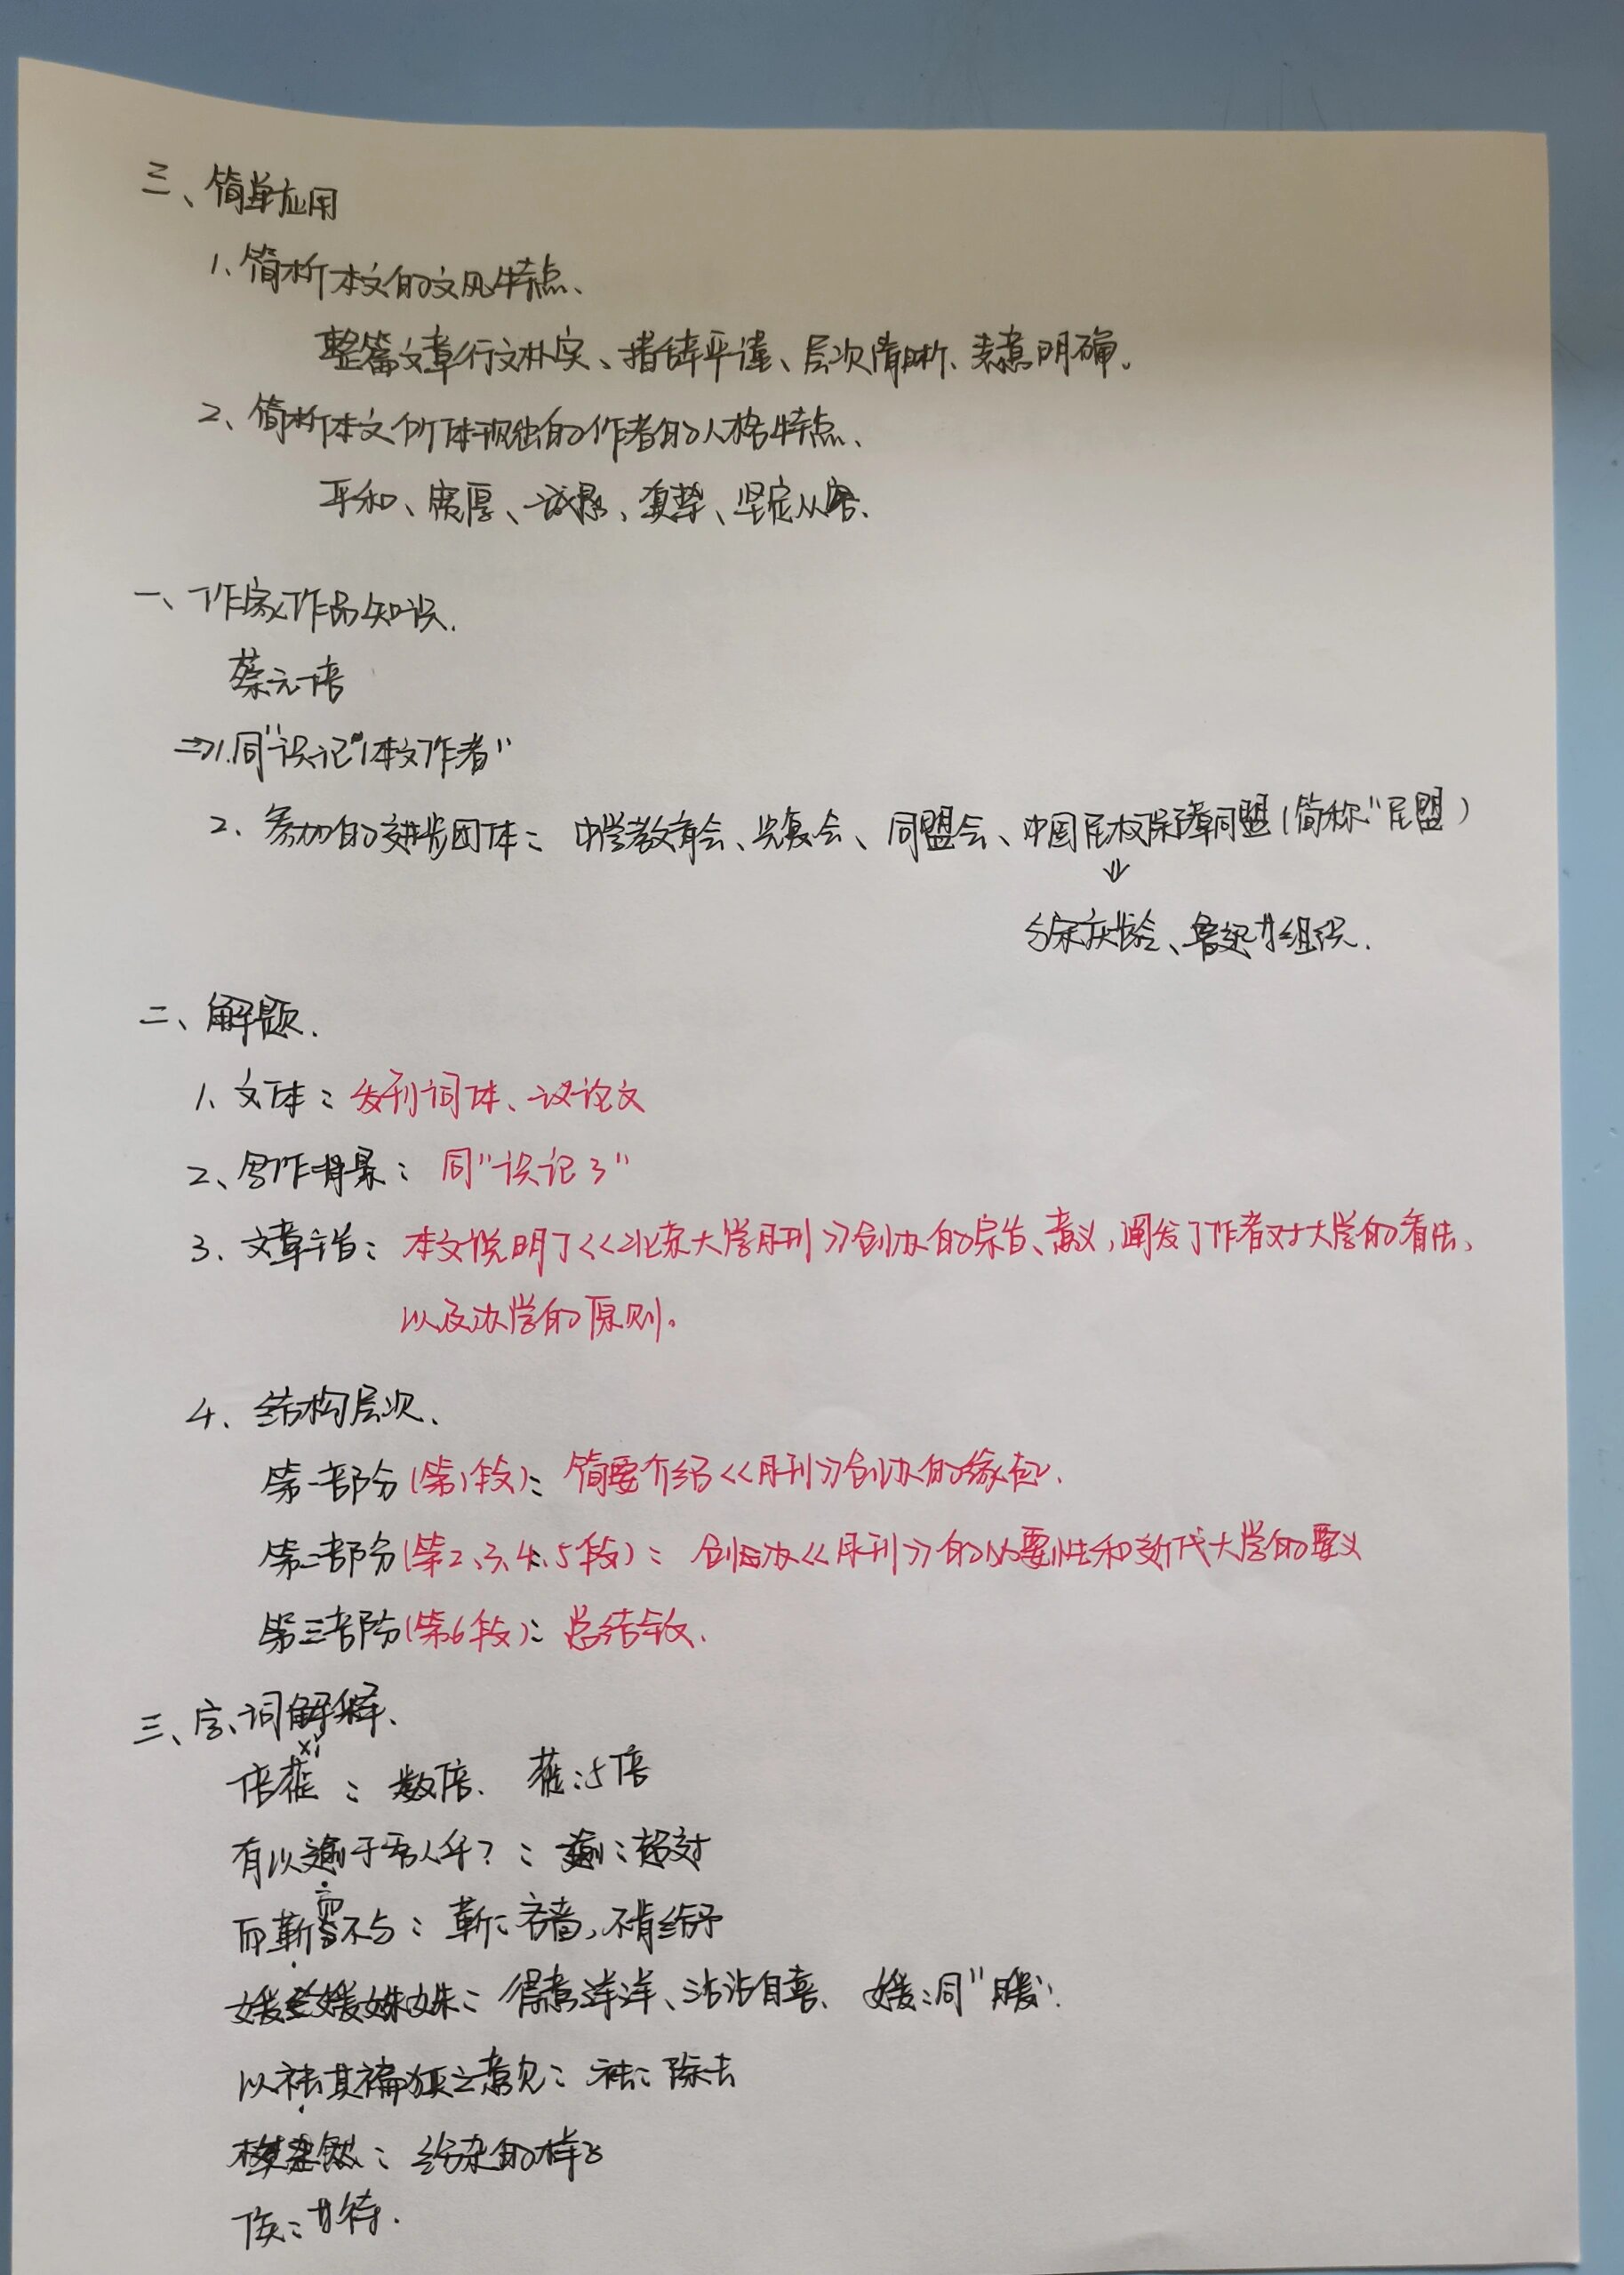 三、简单应用
1、简析本文的文风特点、
整篇文章行文朴实、措辞平谨、层次清晰、表意明确。
2、简析本文所体现出的作者的人格特点、
平和、宽厚、诚恳、真挚、坚定从容、
一、作家作品知识.
蔡元培
⇒1.同"识记"1本文作者"
2、参加的进步团体：中学教育会、光复会、同盟会、中国民权保障同盟(简称"民盟)
⇓
与宋庆龄、鲁迅廿组织.
二、解题.
1、文体：发刊词体、议论文
2、写作背景：同"识记3"
3、文章主旨：本文说明了<<北京大学月刊》创办的宗旨、意义,阐发了作者对大学的看法、
以及办学的原则。
4、结构层次、
第一部分(第1段)：简要介绍<<月刊》创办的缘起、
第二部分(第2、3、4、5段)：创办<<月刊》的必要性和近代大学的要义
第三部分(第6段)：总结全文、
三、字、词解释、
xǐ
倍蓰：数倍、蓰：5倍
有以逾于吾人乎?：逾：超过
而靳不与：靳：吝啬,不肯给予
媛媛姝姝：得意洋洋、沾沾自喜、媛：同"暖".
以祛其褊狭之意见：祛：除去
然：纷杂的样子
俟：廿待.